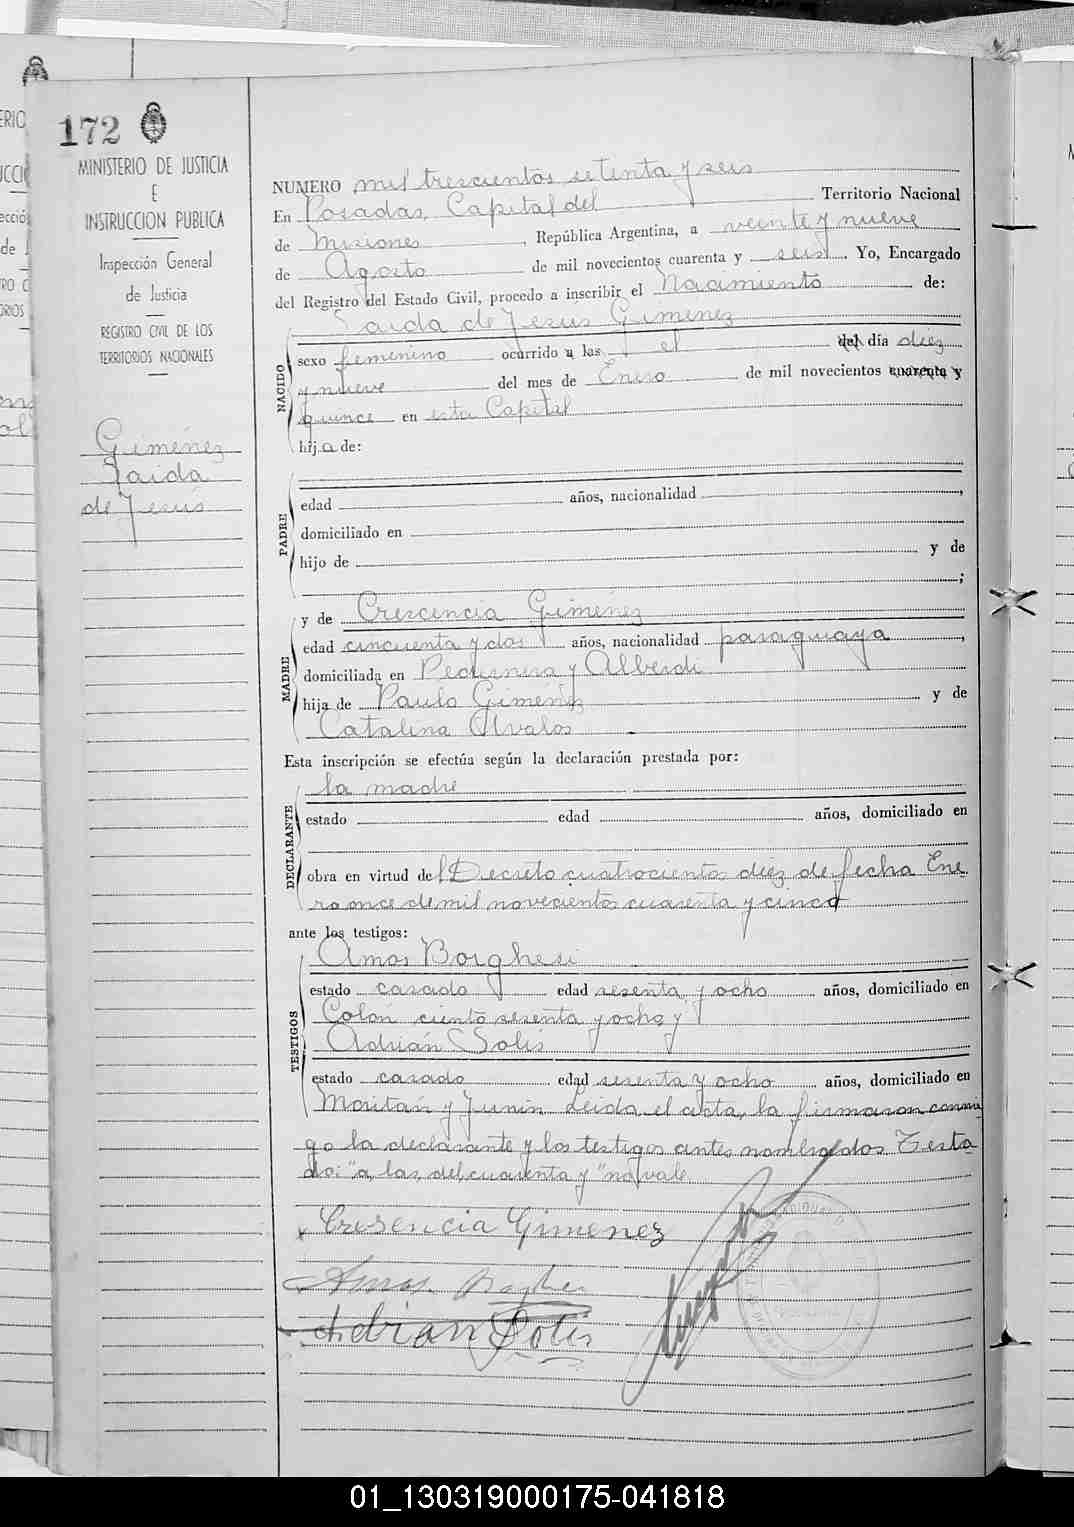 172
MINISTERIO DE JUSTICIA
E
INSTRUCCION PUBLICA
Inspección General
de Justicia
REGISTRO CIVIL DE LOS
TERRITORIOS NACIONALES
Gimenez
Saida
de Jesús
NUMERO mil trescientos setenta y seis
En Posadas, Capital del Territorio Nacional
de Misiones, República Argentina, a veinte y nueve
de Agosto de mil novecientos cuarenta y seis. Yo, Encargado
del Registro del Estado Civil, procedo a inscribir el Nacimiento de:
Saida de Jesús Gimenez
NACIDO
sexo femenino ocurrido a las el del día diez
y nueve del mes de Enero de mil novecientos cuarenta y
quince en esta Capital
hija de:
PADRE
edad años, nacionalidad ,
domiciliado en
hijo de y de
;
MADRE
y de Crescencia Gimenez
edad cincuenta y dos años, nacionalidad paraguaya,
domiciliada en Pedernera y Alberdi
hija de Paulo Gimenez y de
Catalina Avalos
Esta inscripción se efectúa según la declaración prestada por:
DECLARANTE
la madre
estado edad años, domiciliado en
obra en virtud del Decreto cuatrocientos diez de fecha Ene
ro once de mil novecientos cuarenta y cinco
ante los testigos:
TESTIGOS
Amos Borghesi
estado casado edad sesenta y ocho años, domiciliado en
Colon ciento sesenta y ocho y
Adrian Solis
estado casado edad sesenta y ocho años, domiciliado en
Moritan y Junin. Leida el acta, la firmaron conmi
go la declarante y los testigos antes nombrados. Testa
do: "a, las, del, cuarenta y" no vale.
Cresencia Gimenez
Amos
Adrian Solis
01_130319000175-041818